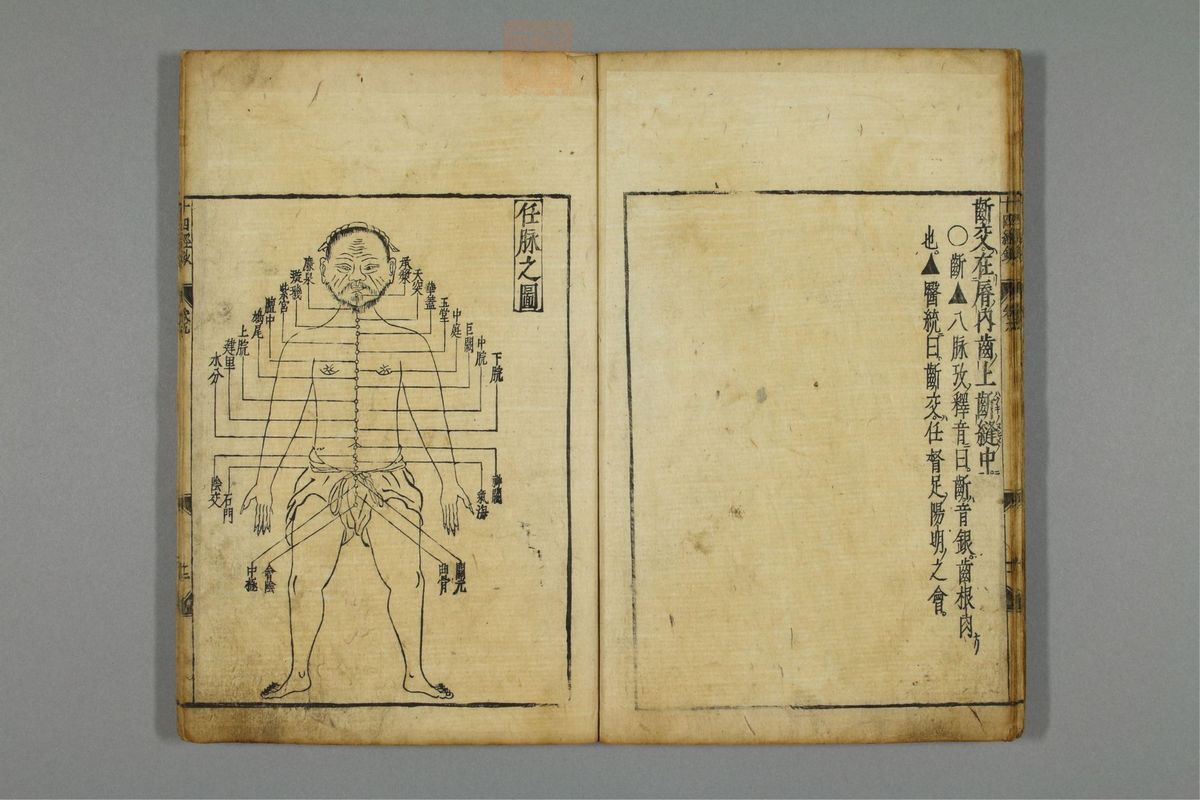 齗交在唇内齒上齗縫中
○齗▲八脉攷釋音曰齗音銀齒根肉
也▲醫統曰齗交任督足陽明之會
任脉之圖
承漿
天突
華蓋
玉堂
中庭
巨闕
中脘
下脘
廉泉
璇璣
紫宮
膻中
鳩尾
上脘
建里
水分
神闕
氣海
陰交
石門
關元
曲骨
會陰
中極